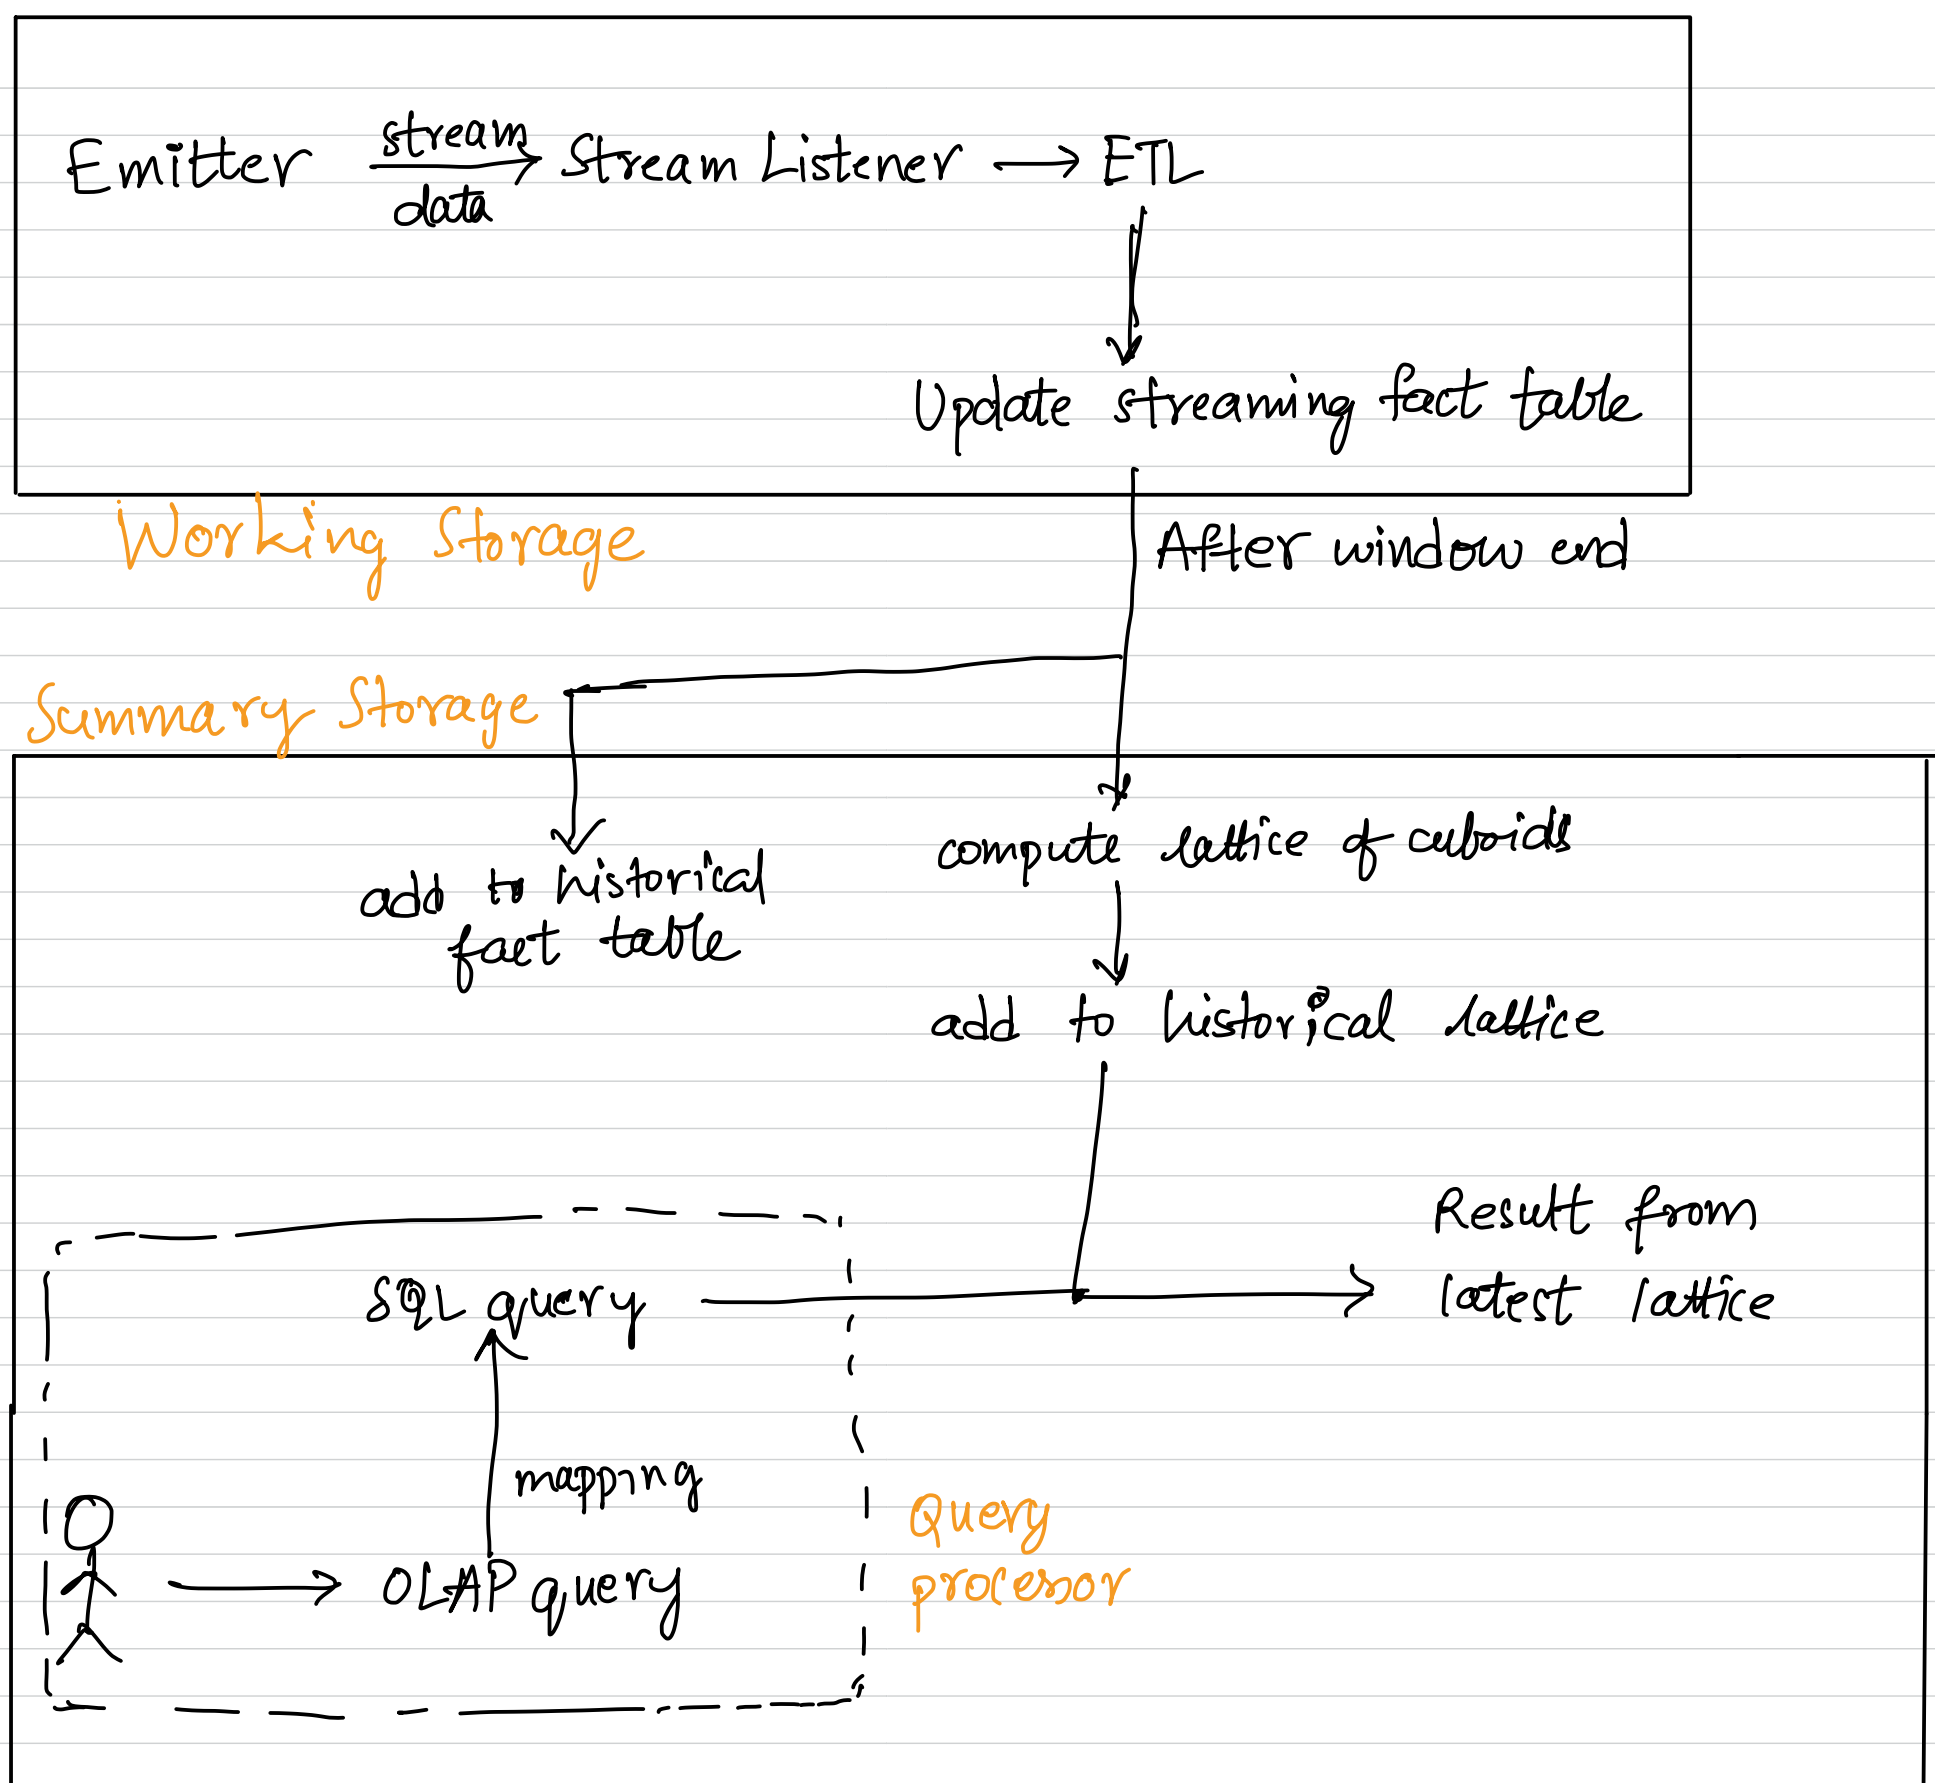 Emitter
stream
data
Stream Listener
ETL
Update streaming fact table
Working Storage
After window end
Summary Storage
compute lattice of cuboids
add to historical
fact table
add to historical lattice
Result from
latest lattice
SQL query
mapping
OLAP query
Query
processor